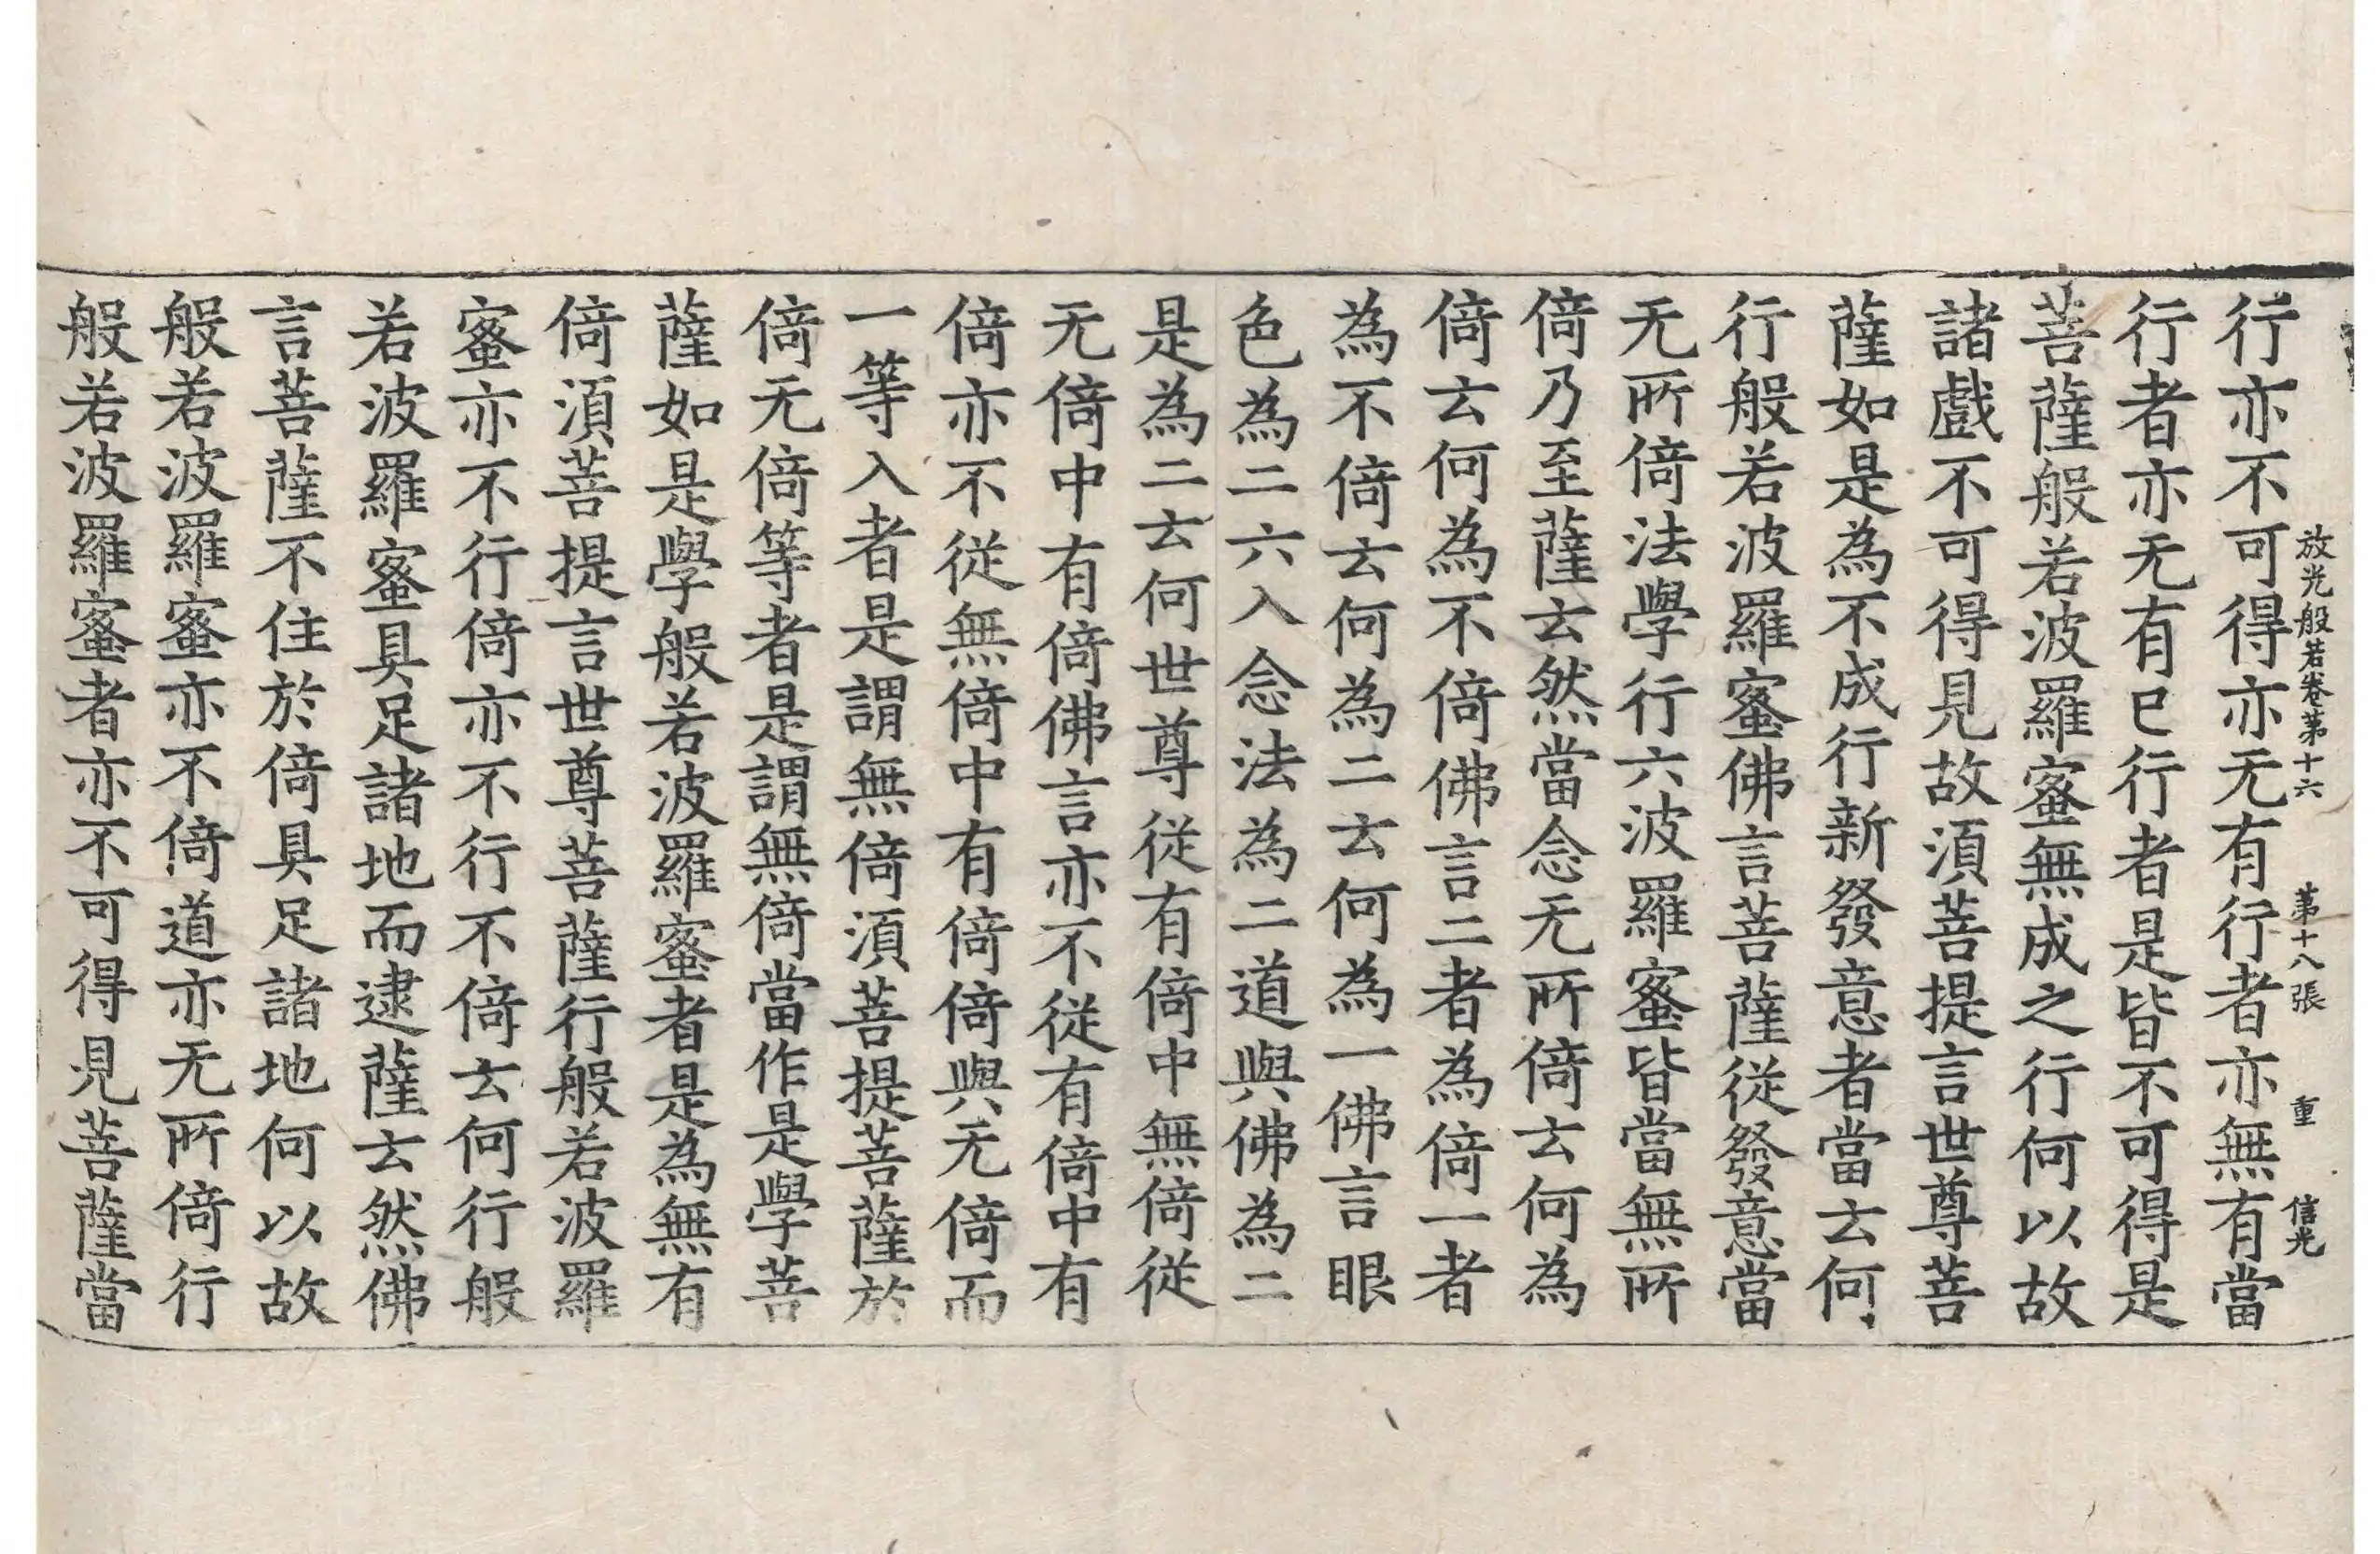 放光般若卷第十六 第十八張 重 信光
行亦不可得亦无有行者亦無有當
行者亦无有已行者是皆不可得是
菩薩般若波羅蜜無成之行何以故
諸戲不可得見故湏菩提言世尊菩
薩如是為不成行新發意者當云何
行般若波羅蜜佛言菩薩從發意當
无所倚法學行六波羅蜜皆當無所
倚乃至薩云然當念无所倚云何為
倚云何為不倚佛言二者為倚一者
為不倚云何為二云何為一佛言眼
色為二六入念法為二道與佛為二
是為二云何世尊從有倚中無倚從
无倚中有倚佛言亦不從有倚中有
倚亦不從無倚中有倚倚與无倚而
一等入者是謂無倚湏菩提菩薩於
倚无倚等者是謂無倚當作是學菩
薩如是學般若波羅蜜者是為無有
倚湏菩提言世尊菩薩行般若波羅
蜜亦不行倚亦不行不倚云何行般
若波羅蜜具足諸地而逮薩云然佛
言菩薩不住於倚具足諸地何以故
般若波羅蜜亦不倚道亦无所倚行
般若波羅蜜者亦不可得見菩薩當